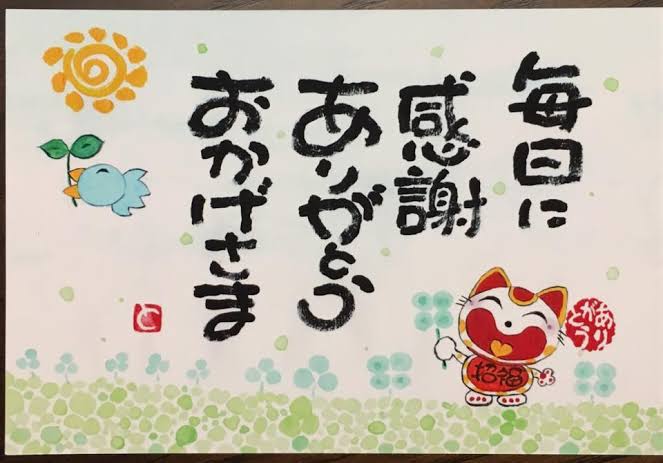 毎日に
感謝
ありがとう
おかげさま
ありがとう
招福
と